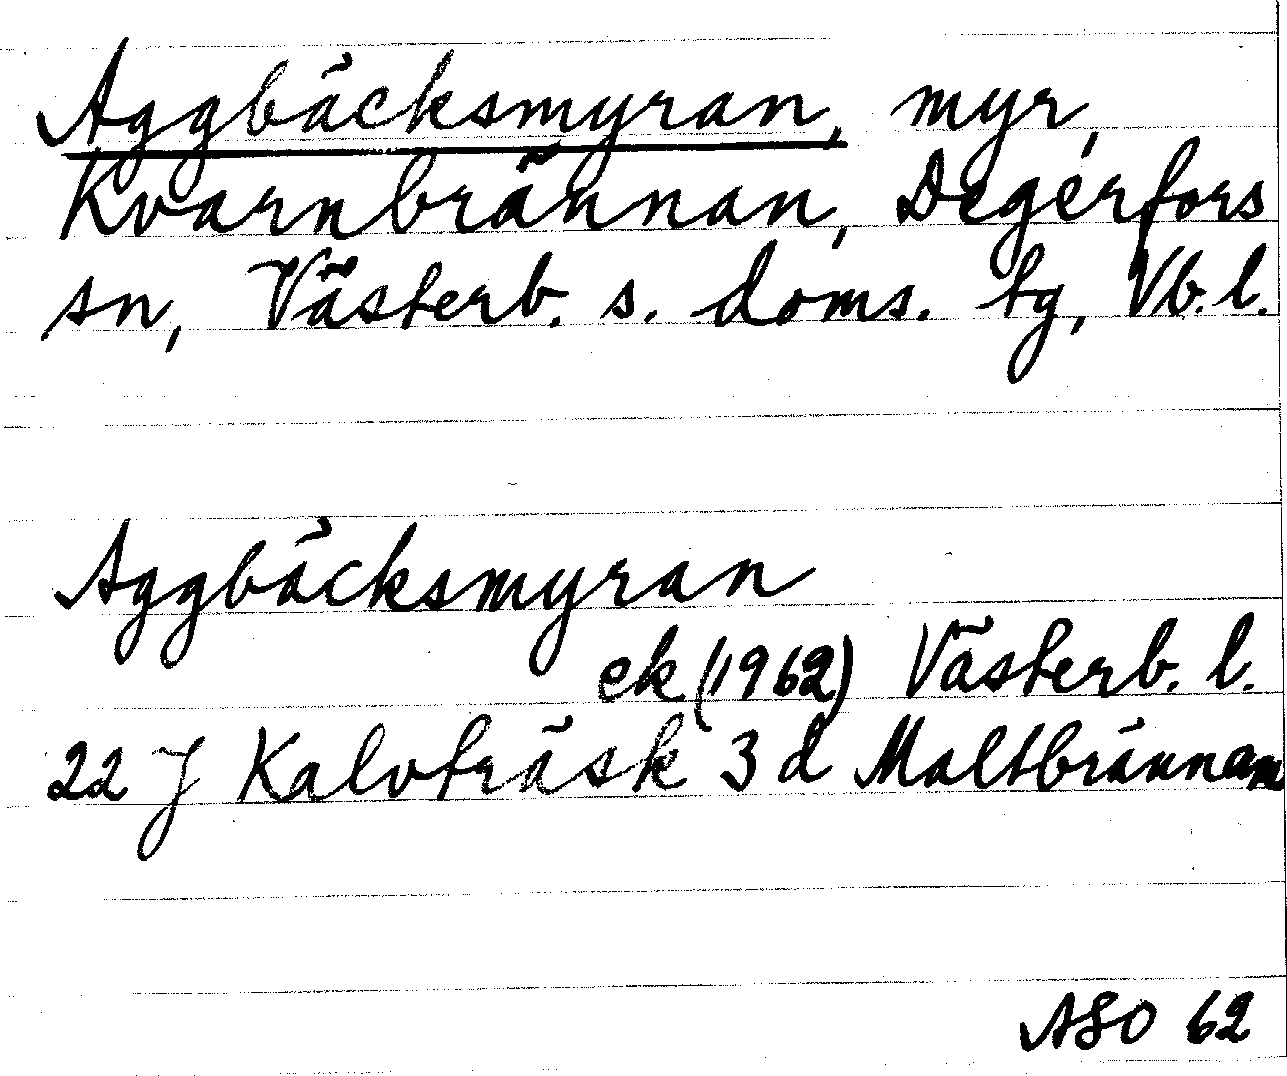 Aggbäcksmyran, myr,
Kvarnbrännan, Degerfors
sn, Västerb. s. doms. tg, Vb. l.
Aggbäcksmyran
ek (1962) Västerb. l.
22 J Kalvträsk 3 d Maltbrännan
ASO 62